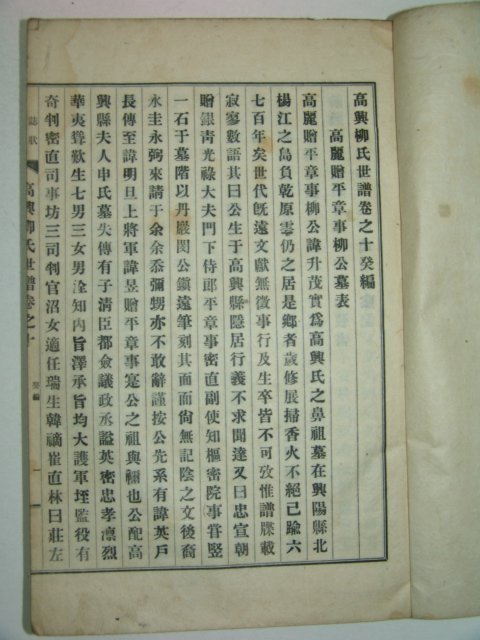 高興柳氏世譜卷之十癸編
高麗贈平章事柳公墓表
高麗贈平章事柳公諱升茂實爲高興氏之鼻祖墓在興陽縣北
楊江之島負乾原雲仍之居是鄕者歲修展掃香火不絕已踰六
七百年矣世代旣遠文獻無徵事行及生卒皆不可攷惟譜牒載
寂寥數語其曰公生于高興縣隱居行義不求聞達又曰忠宣朝
贈銀靑光祿大夫門下侍郞平章事密直副使知樞密院事嘗竪
一石于墓階以丹嚴閔公鎭遠筆刻其面面尙無記陰之文後裔
永圭永弼來請于余余忝彌甥亦不敢辭謹按公先系有諱英戶
長傳至諱明旦上將軍諱昱贈平章事寔公之祖與禰也公配高
興縣夫人申氏墓失傳有子淸臣都僉議政丞謚英密忠孝凛烈
華夷聳歎生七男三女男詮知內旨澤承旨均大護軍垤監役有
奇判密直司事坊三司判官沼女適任瑞生韓禞崔直林曰莊左
誌狀
高興柳氏世譜卷之十
癸編
一